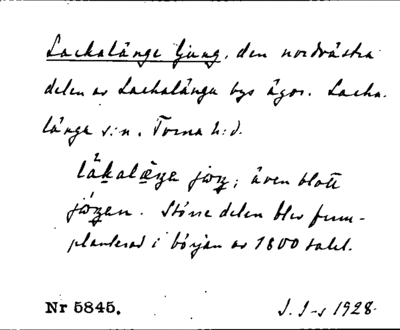 Lackalänge ljung, den nordvästra
delen av Lackalänga bys ägor. Lacka-
länga s:n. Torna h:d.
jo̯ŋ; även blott
Större delen blev furu-
planterad i början av 1800 talet.
Nr 5845. J. I-s 1928.